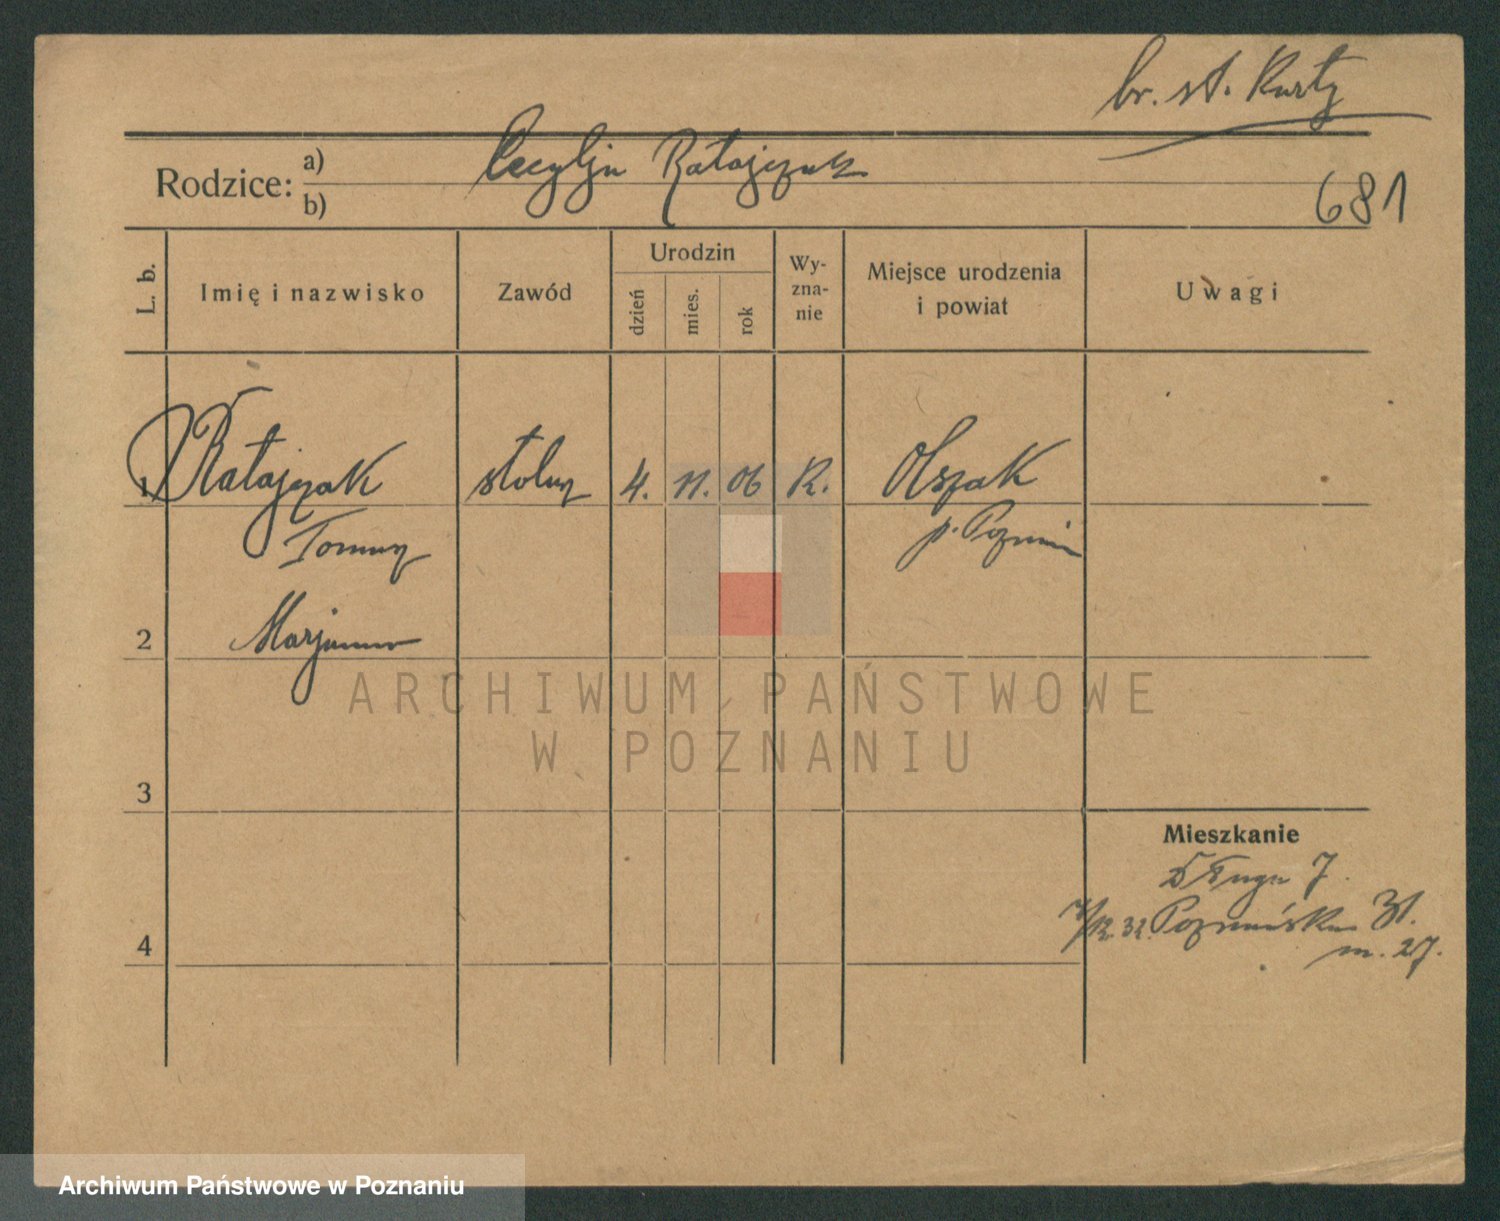 br. st. Kurtz
Rodzice: a) Cecylja Ratajczak
b)
681
L. b.
Imię i nazwisko
Zawód
Urodzin
dzień
mies.
rok
Wy-
zna-
nie
Miejsce urodzenia
i powiat
Uwagi
1 Ratajczak stolarz 4. 11. 06 R. Olszak
Tomasz p. Poznań
2 Marjanna
ARCHIWUM PAŃSTWOWE
W POZNANIU
3
Mieszkanie
Długa 7.
Poznańska 31.
m. 27.
4
Archiwum Państwowe w Poznaniu